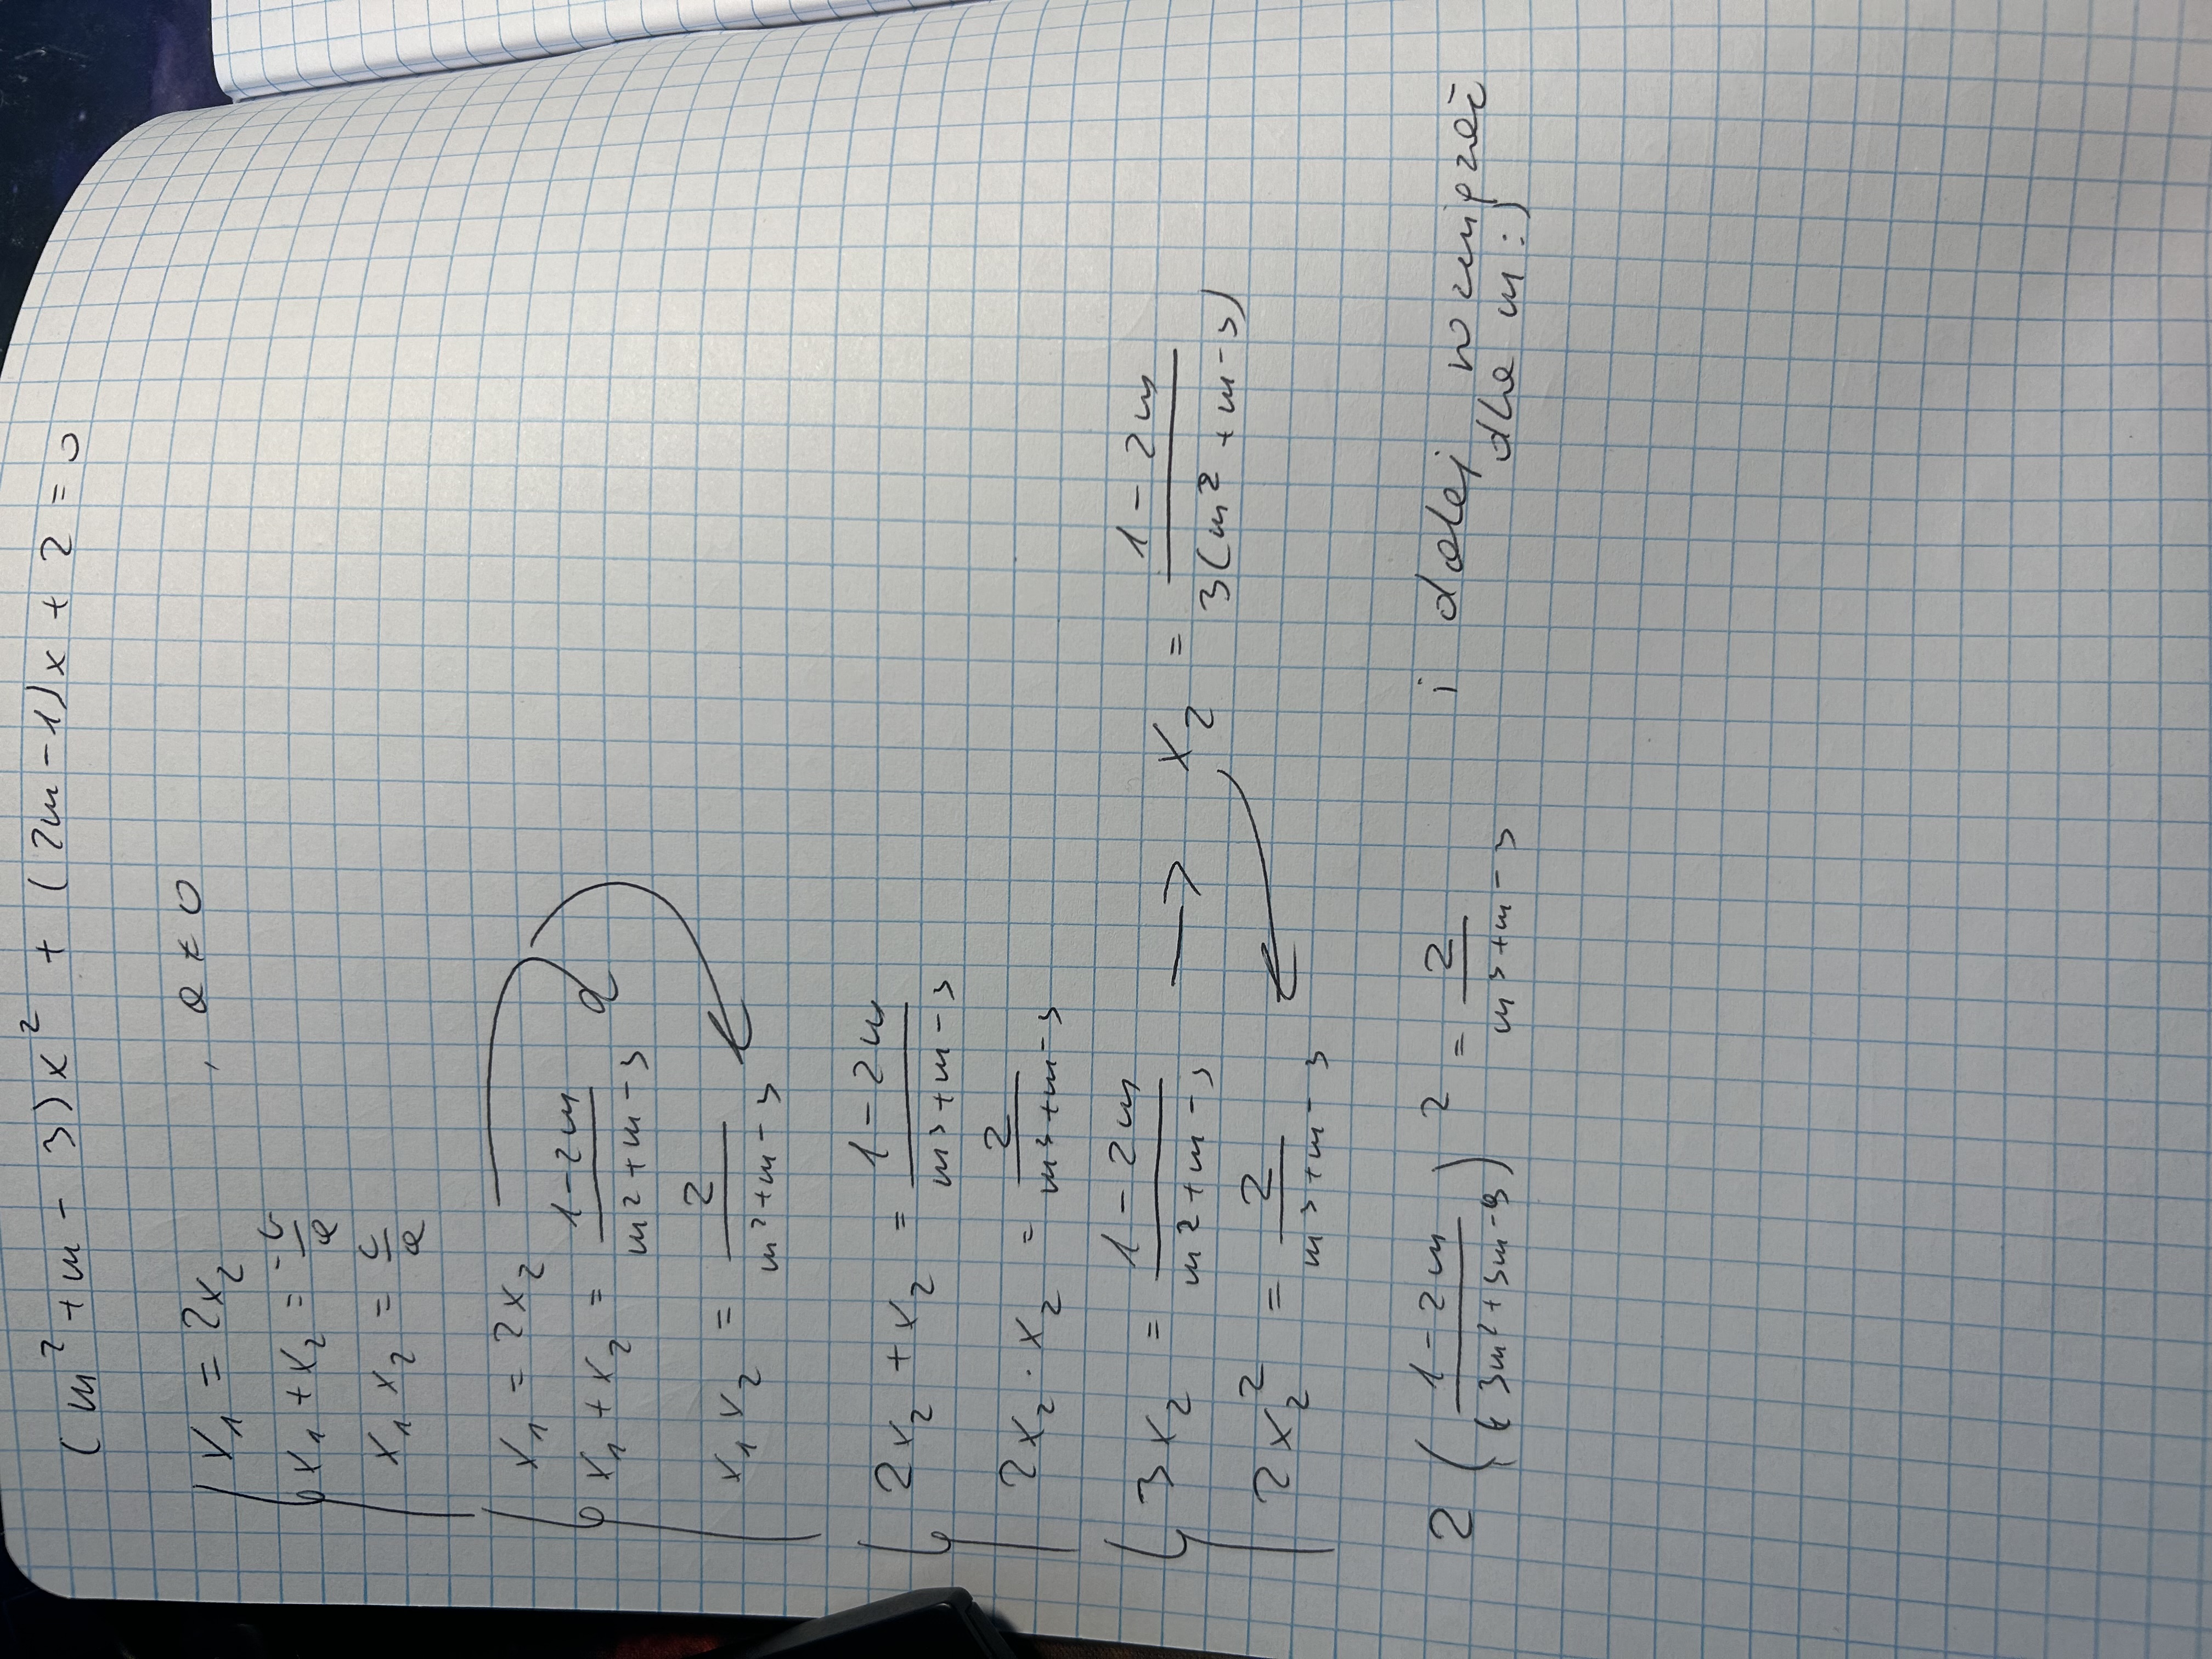 (m² + m - 3)x² + (2m - 1)x + 2 = 0
{ x₁ = 2x₂ , a ≠ 0
x₁ + x₂ = -b/a
x₁ x₂ = c/a
{ x₁ = 2x₂
x₁ + x₂ = (1 - 2m)/(m² + m - 3)
x₁ x₂ = 2/(m² + m - 3)
{ 2x₂ + x₂ = (1 - 2m)/(m² + m - 3)
2x₂ · x₂ = 2/(m² + m - 3)
{ 3x₂ = (1 - 2m)/(m² + m - 3) → x₂ = (1 - 2m)/(3(m² + m - 3))
2x₂² = 2/(m² + m - 3)
2((1 - 2m)/(3m² + 3m - 9))² = 2/(m² + m - 3) i dalej rozwiązać
dla m :)